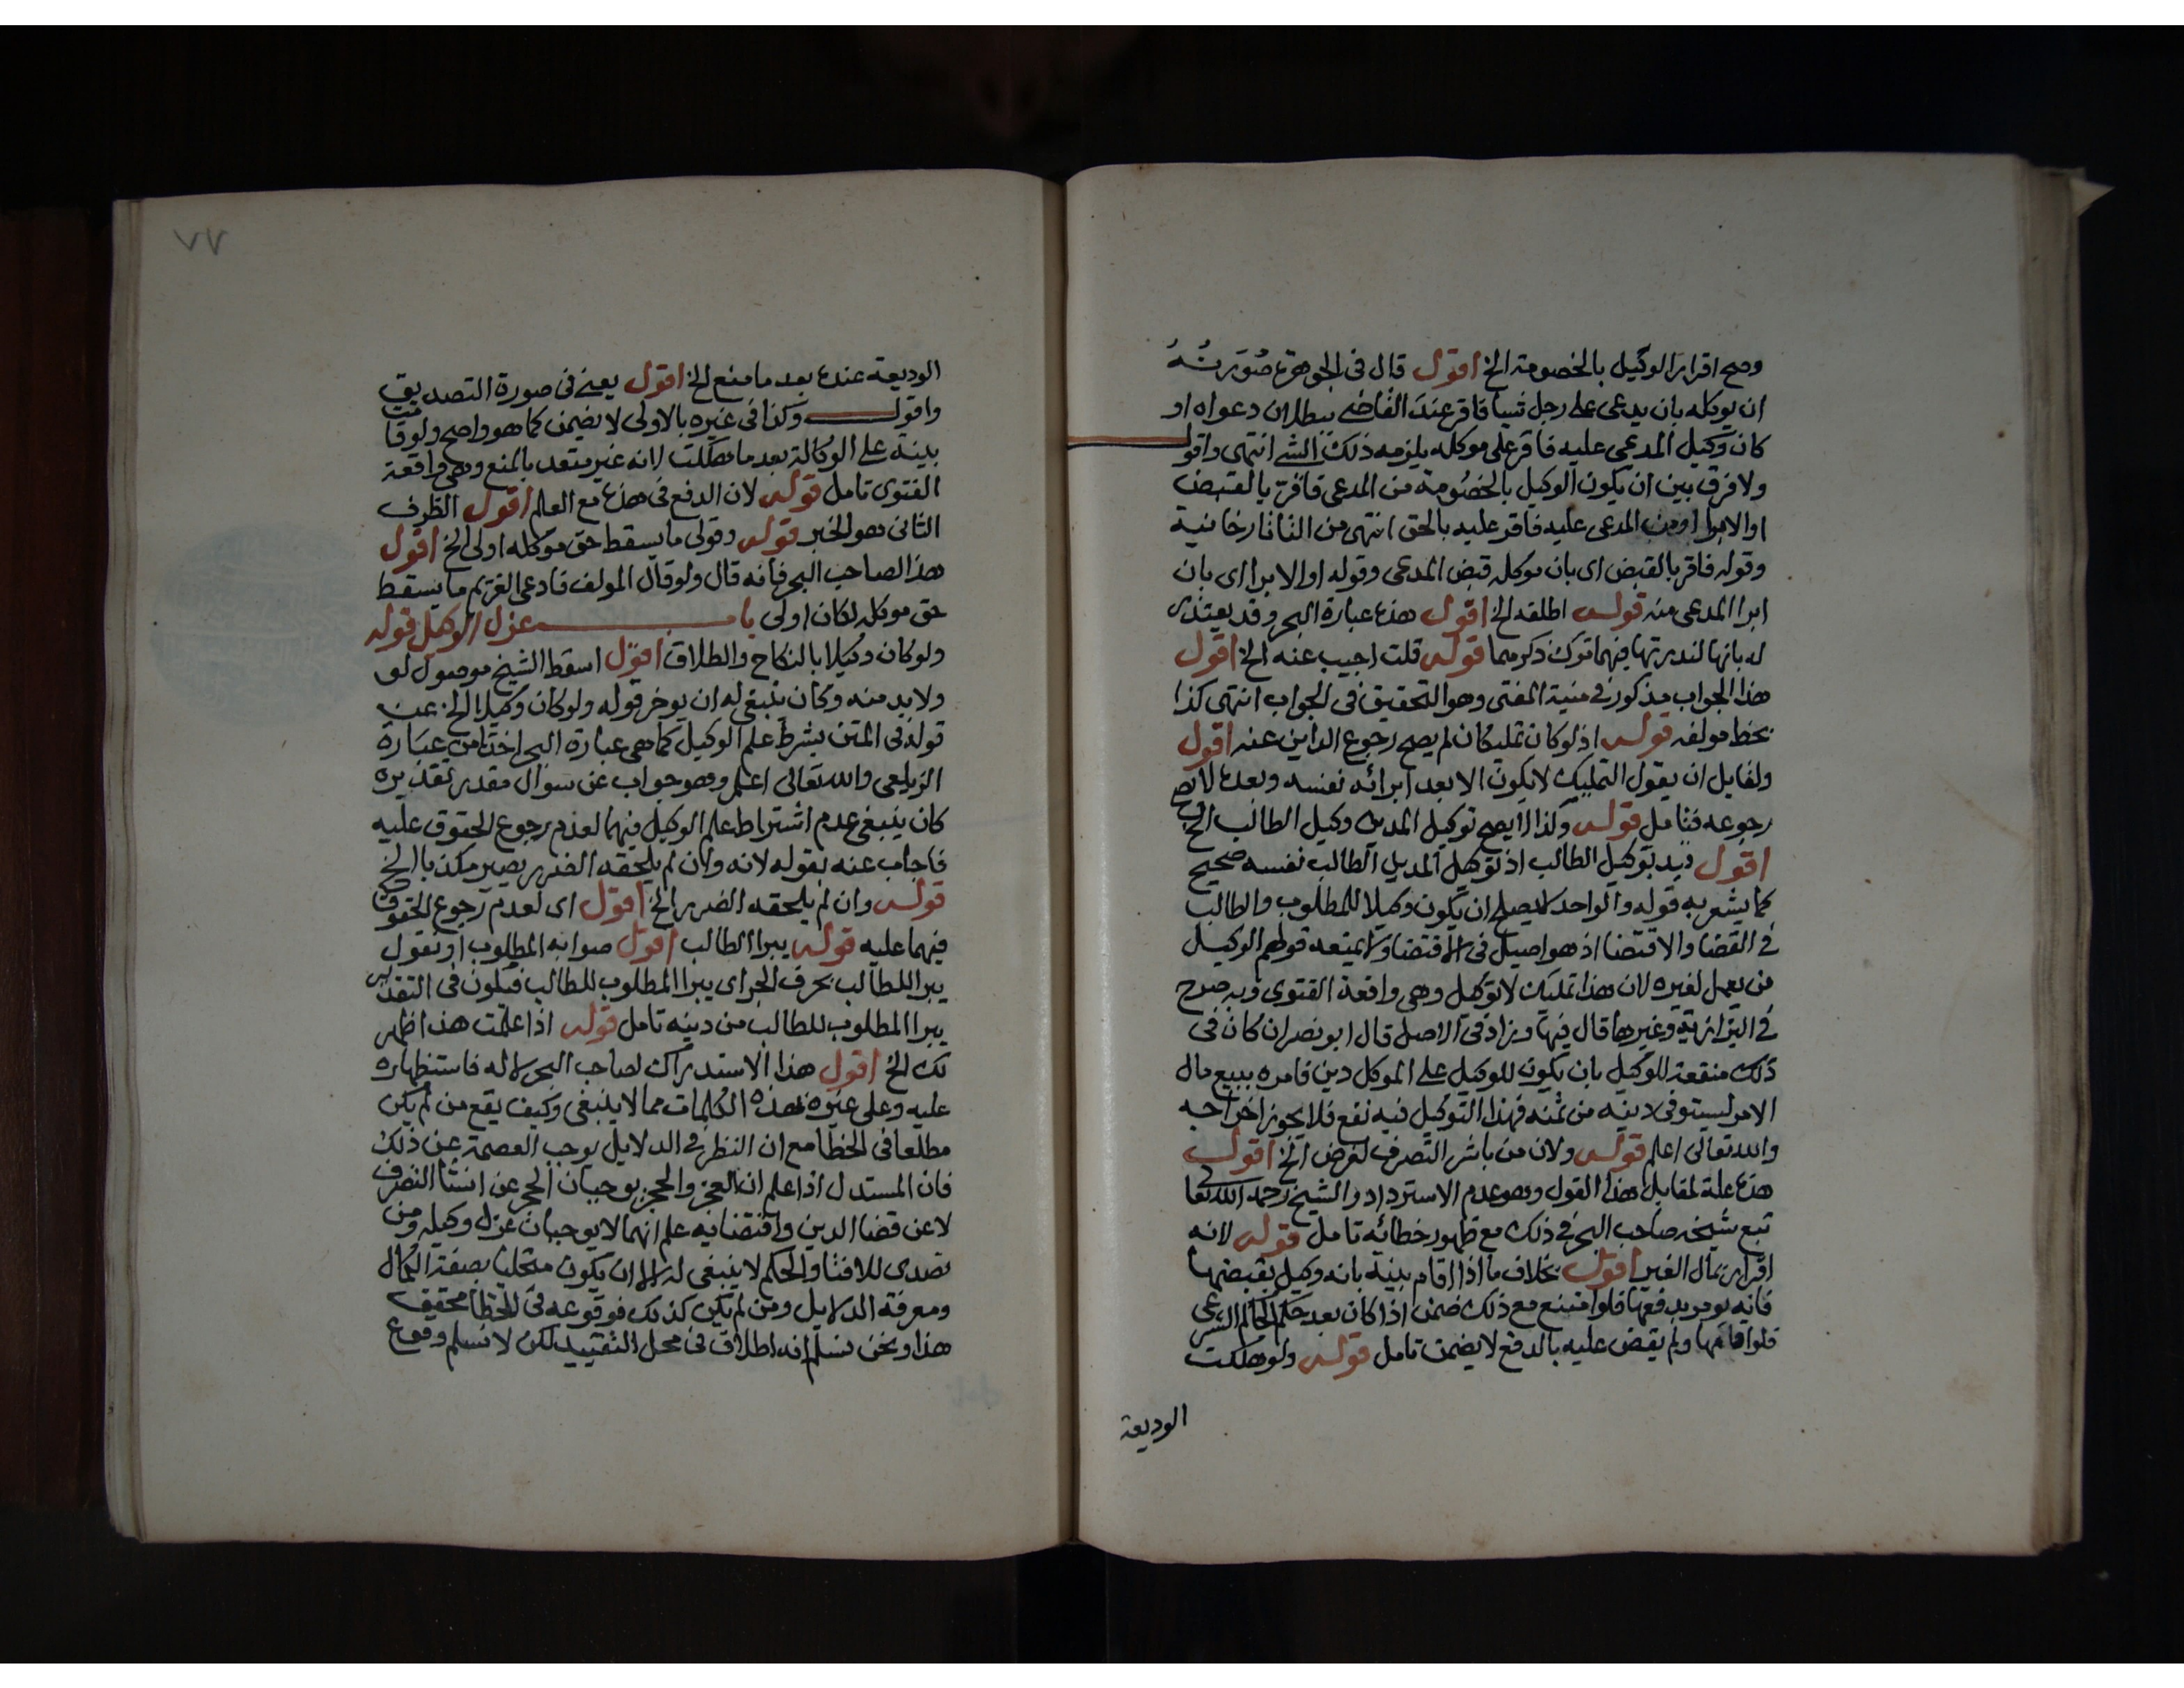 وصح اقرار الوكيل بالخصومة الخ اقول قال فى الجوهرة صُوَرتُهُ
ان يوكله بان يدعى على رجل شيا فاقر عند القاضى ببطلان دعواه او
كان وكيل المدعى عليه فاقر على موكله يلزمه ذلك الشى انتهى واقول
ولا فرق بين ان يكون الوكيل بالخصومة من المدعى فاقر بالقبض
او الابرا او من المدعى عليه فاقر عليه بالحق انتهى من التاتارخانية
وقوله فاقر بالقبض اى بان موكله قبض المدعى وقوله او الابرا اى بان
ابرا المدعى منه قوله اطلقه الخ اقول هذه عبارة البحر وقد يعتذر
له بانها لندرتها فيهما ترك ذكرهما قوله قلت اجيب عنه الخ اقول
هذا الجواب مذكور فى منية المفتى وهو التحقيق فى الجواب انتهى كذا
بخط مولفه قوله اذ لو كان تمليكا ن لم يصح رجوع الداين عنه اقول
ولقايل ان يقول التمليك لا يكون الا بعد ابرائه نفسه وبعده لا يصح
رجوعه فتامل قوله وكذا لا يصح توكيل المديون وكيل الطالب الخ
اقول قيد بتوكيل الطالب اذ توكيل المديل الطالب نفسه صحيح
كما يشعر به قوله والواحد لا يصلح ان يكون وكيلا للمطلوب والطالب
فى القضا والاقتضا اذ هو اصيل فى الاقتضا ولا يمنعه قولهم الوكيل
من يعمل لغيره لان هذا تمليك لا توكيل وهى واقعة الفتوى وبه صرح
فى البزازية وغيرها قال فيها وزاد فى الاصل قال ابو نصر ان كان فى
ذلك منفعة للوكيل بان يكون للوكيل على الموكل دين فامره ببيع مال
الامر ليستوفى دينه من ثمنه فهذا التوكيل فيه نفع فلا يجوز اخراجه
والله تعالى اعلم قوله ولان من باشر التصرف لغرض الخ اقول
هذه علة لمقابل هذا القول وهو عدم الاسترداد والشيخ رحمه الله تعالى
تبع شيخه صاحب البحر فى ذلك مع ظهور خطائه تامل قوله لانه
اقرار بمال الغير اقول بخلاف ما اذا اقام بينة بانه وكيل بقبضها
فانه يومر بدفعها فلو امتنع مع ذلك ضمن اذا كان بعد حكم الحاكم الشرعى
فلو اقامها ولم يقض عليه بالدفع لا يضمن تامل قوله ولو هلكت
الوديعة
٧٧
الوديعة عنده بعد ما منع الخ اقول يعنى فى صورة التصديق
واقول وكذا فى غيره بالاولى لا يضمن كما هو واضح ولو قامت
بينة على الوكالة بعد ما هلكت لانه غير متعد بالمنع وهى واقعة
الفتوى تامل قوله لان الدفع فى هذه مع العلم اقول الظرف
الثانى هو الخبر قوله وقولى ما يسقط حق موكله اولى الخ اقول
هذا لصاحب البحر فانه قال ولو قال المولف فادعى الغريم ما يسقط
حق موكله لكان اولى باب عزل الوكيل قوله
ولو كان وكيلا بالنكاح والطلاق اقول اسقط الشيخ موصول لو
ولا بد منه وكان ينبغى له ان يوخر قوله ولو كان وكيلا الخ عن
قوله فى المتن بشرط علم الوكيل كما هى عبارة البحر اخذا من عبارة
الزيلعى والله تعالى اعلم وهو جواب عن سوال مقدر تقديره
كان ينبغى عدم اشتراط علم الوكيل فيهما لعدم رجوع الحقوق عليه
فاجاب عنه بقوله لانه وان لم يلحقه الضرر يصير مكذبا الخ
قوله وان لم يلحقه الضرر الخ اقول اى لعدم رجوع الحقوق
فيهما عليه قوله يبرا الطالب اقول صوابه المطلوب او نقول
يبرا للطالب بحرف الجر اى يبرا المطلوب للطالب فيكون فى التقدير
يبرا المطلوب للطالب من دينه تامل قوله اذا علمت هذا ظهر
لك الخ اقول هذا الاستدراك لصاحب البحر لا له فاستظهاره
عليه وعلى غيره بهذه الكلمات مما لا ينبغى وكيف يقع من لم يكن
مطلعا فى الخطا مع ان النظر فى الدلايل يوجب العصمة عن ذلك
فان المستدل اذا علم ان العجز والحجر يوجبان الحجر عن انشا التصرف
لا عن قضا الدين واقتضايه علم انهما لا يوجبان عزل وكيله ومن
تصدى للافتا والحكم لا ينبغى له الا ان يكون متحليا بصفة الكمال
ومعرفة الدلايل ومن لم يكن كذلك فوقوعه فى الخطا محقق
هذا ونحن نسلم انه اطلاق فى محل التقييد لكن لا نسلم وقوع